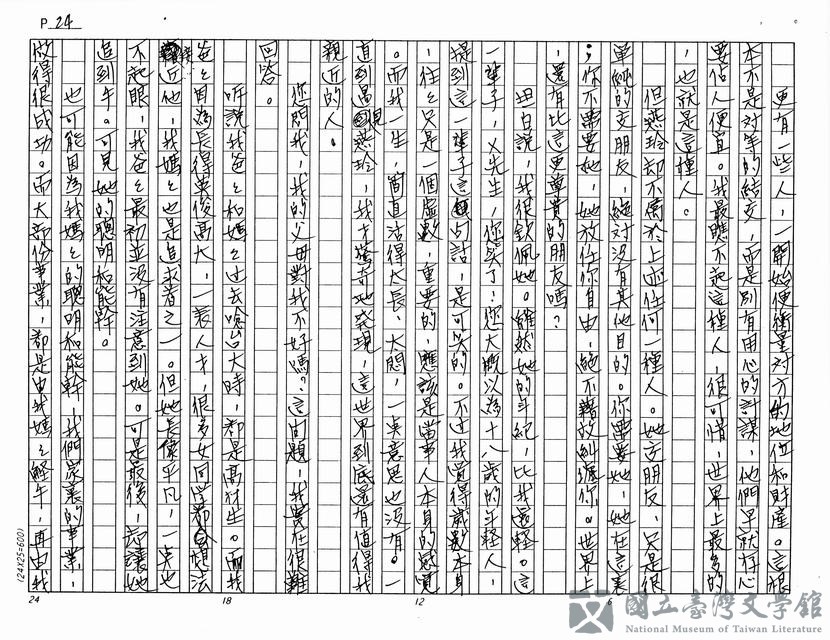 P 24
更有一些人，一開始便衡量對方的地位和財產。這根
本不是對等的結交，而是別有用心的計謀，他們早就存心
要佔人便宜。我最瞧不起這種人，很可惜，世界上最多的
，也就是這種人。
但燕玲却不屬於上述任何一種人。她交朋友，只是很
單純的交朋友，絕對沒有其他目的。你需要她，她在這裏
；你不需要她，她放任你自由，絕不藉故糾纏你。世界上
，還有比這更尊貴的朋友嗎？
坦白說，我很欽佩她。雖然她的年紀，比我還輕。這
一輩子，X先生，您笑了？您大概以為十八歲的年輕人，
提到這一輩子這句話，是可笑的。不过我覺得歲數本身
，往々只是一個虛數，重要的，應該是當事人本身的感覺
。而我一生，簡直活得太長，太悶，一点意思也沒有。一
直到遇見燕玲，我才驚奇地發現，這世界到底還有值得我
親近的人。
您問我，我的父母對我不好嗎？這問題，我實在很難
回答。
听說我爸々和媽々过去唸台大時，都是高材生。而我
爸々因為長得英俊高大，一表人才，很多女同学都會想法
接近他，我媽々也是追求者之一。但她長像平凡，一点也
不起眼，我爸々最初並没有注意到她。可是最後，却讓她
追到手。可見她的聰明和能幹。
也可能因為我媽々的聰明和能幹，我們家裏的事業，
做得很成功。而大部份事業，都是由我媽々經手，再由我
24
18
12
6
(24X25=600)
國立臺灣文學館
National Museum of Taiwan Literature